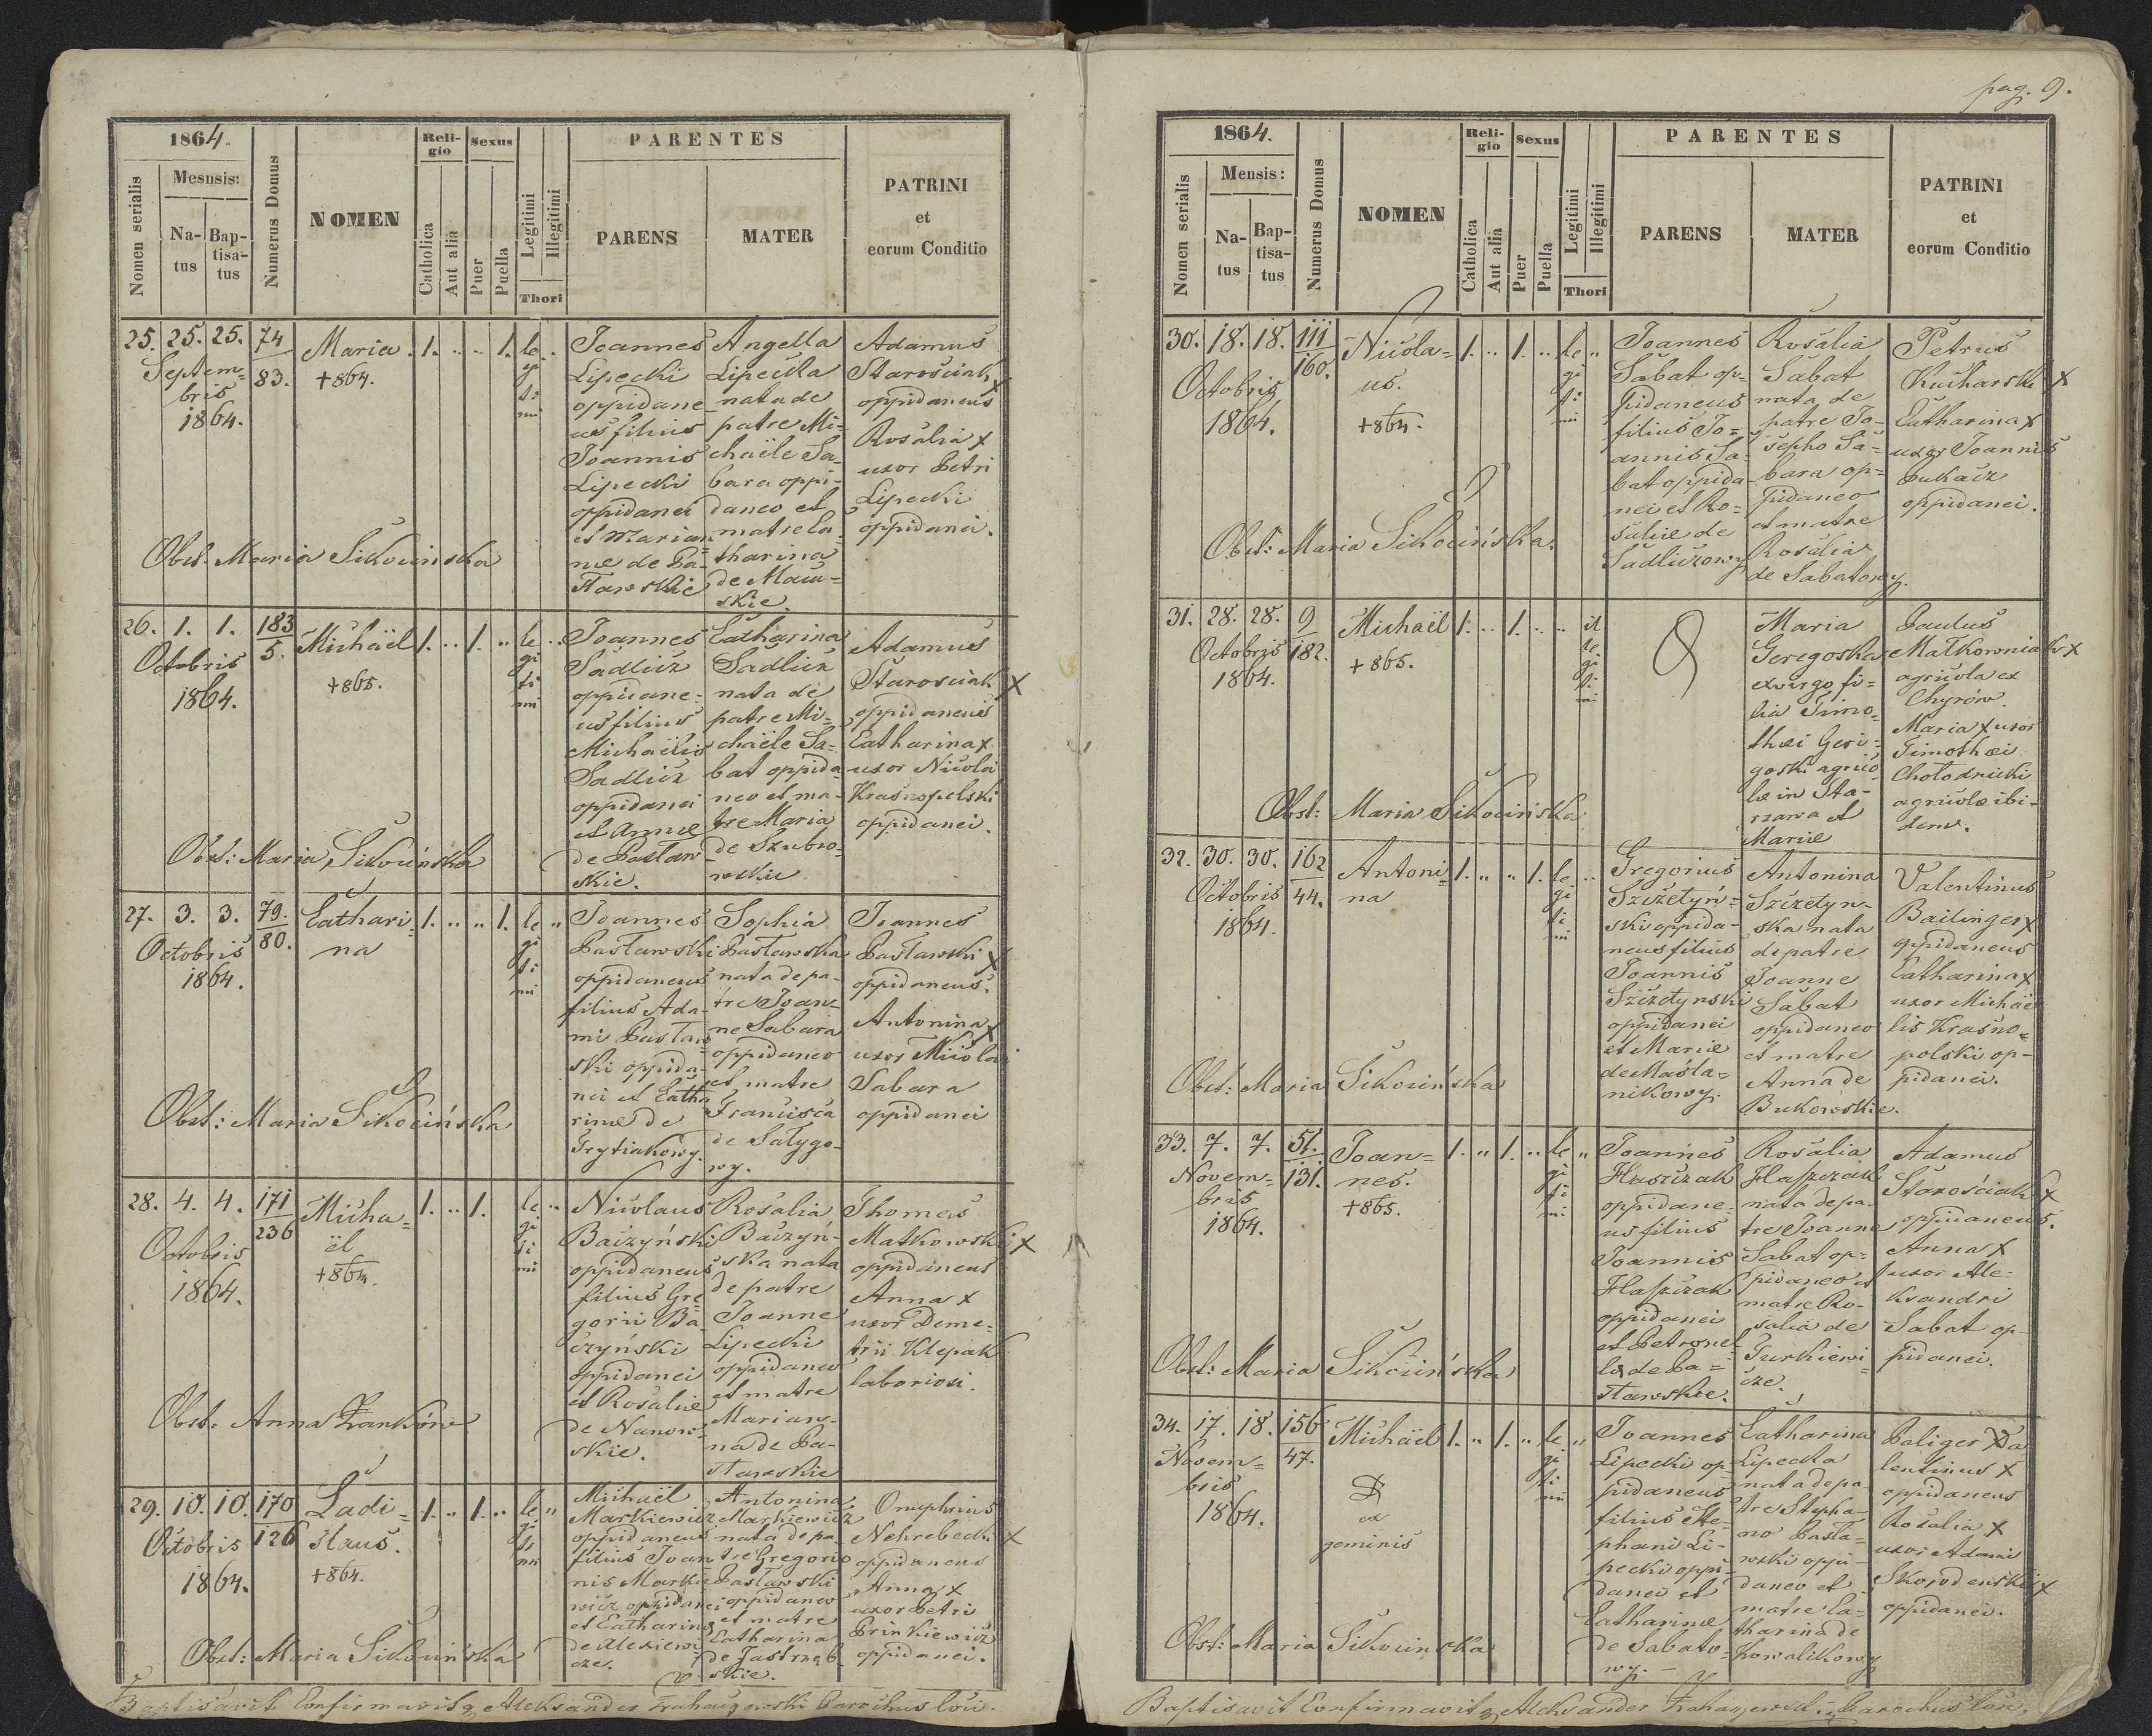 1864.
Nomen serialis
Mesnsis:
Na-
tus
Bap-
tisa-
tus
Numerus Domus
NOMEN
Reli-
gio
Catholica
Aut alia
Sexus
Puer
Puella
Legitimi
Illegitimi
Thori
PARENTES
PARENS
MATER
PATRINI
et
eorum Conditio
25. 25. 25. 74
83.
Septem=
bris
1864.
Maria.
+864.
1. .. .. 1. le ..
gi
ti
mi
Joannes
Lipecki
oppidane
us filius
Joannis
Lipecki
oppidanei
et Marian
næ de Ba-
sławskie
Angella
Lipecka
nata de
patre Mi=
chaële Sa-
bara oppi-
daneo et
matre Ca-
tharina
de Maw=
skie.
Adamus
Starościak x
oppidaneus
Rosalia x
uxor Petri
Lipecki
oppidanei.
Obst: Maria Sikocińska
26. 1. 1. 183
5.
Octobris
1864.
Michaël
+865.
1. .. 1. .. le ..
gi
ti
mi
Joannes
Sadlicz
oppidane-
us filius
Michaëlis
Sadlicz
oppidanei
et Annæ
de Basław
skie.
Catharina
Sadlicz
nata de
patre Mi=
chaële Sa=
bat oppida
neo et ma-
tre Maria
de Szubro-
wskie
Adamus
Starosciak X
oppidaneus
Catharina x
uxor Nicolai
Krasnopolski
oppidanei.
Obst: Maria Sikocińska
27. 3. 3. 79.
80.
Octobris
1864.
Cathari=
na
1. .. .. 1. le ..
gi
ti
mi
Joannes
Basławski
oppidaneus
filius Ada-
mi Basław
ski oppida-
nei et Catha
rinæ de
Frytiakowy.
Sophia
Basławska
nata de pa-
tre Joan
ne Sabara
oppidaneo
et matre
Francisca
de Sałygo-
wy.
Joannes
Basławski x
oppidaneus.
Antonina x
uxor Nicolai
Sabara
oppidanei
Obst: Maria Sikocińska
28. 4. 4. 171
236
Octobris
1864.
Micha=
ël
+864.
1. .. 1. le ..
gi
ti
mi
Nicolaus
Baczyński
oppidaneus
filius Gre
gorii Ba
czyński
oppidanei
et Rosaliæ
de Nanow-
skie.
Rosalia
Baczyń-
ska nata
de patre
Joanne
Lipecki
oppidaneo
et matre
Marian-
na de Ba-
sławskie
Thomas
Matkowski x
oppidaneus
Anna x
uxor Deme=
trii Klepak
laboriosi.
Obst: Anna
29. 10. 10. 170
126
Octobris
1864.
Ladi=
slaus.
+864.
1. .. 1. .. le ..
gi
ti
mi
Michaël
Markiewicz
oppidaneus
filius Joan
nis Markie
wicz oppidanei
et Catharinæ
de Alexiewi
cze.
Antonina
Markiewicz
nata de pa-
tre Gregorio
Basławski
oppidaneo
et matre
Catharina
de Jastrzęb
skie.
Onuphrius
Nehrebecki x
oppidaneus
Anna x
uxor Petri
Brinkiewicz
oppidanei.
Obst: Maria Sikocińska
Baptisavit Confirmavitq Aleksander Parochus loci.
pag. 9.
1864.
Nomen serialis
Mensis:
Na-
tus
Bap-
tisa-
tus
Numerus Domus
NOMEN
Reli-
gio
Catholica
Aut alia
Sexus
Puer
Puella
Legitimi
Illegitimi
Thori
PARENTES
PARENS
MATER
PATRINI
et
eorum Conditio
30. 18. 18. 111
160.
Octobris
1864.
Nicola=
us.
+864.
1. .. 1. .. le ..
gi
ti
mi
Joannes
Sabat op-
pidaneus
filius Jo=
annis Sa-
bat oppida
nei et Ro=
saliæ de
Sadliczowy
Rosalia
Sabat
nata de
patre Jo-
sepho Sa=
bara op=
pidaneo
et matre
Rosalia
de Sabatowy.
Petrus
Kucharski x
Catharina x
uxor Joannis
Łukacz
oppidanei.
Obst: Maria Sikocińska.
31. 28. 28. 9
182.
Octobris
1864.
Michaël
+865.
1. .. 1. .. .. il
le
gi
ti
mi
Maria
Geregoska
exvirgo fi=
lia Timo-
thæi Geri-
goski agrico
læ in Sta-
rzawa et
Mariæ
Paulus
Małkowniak x
agricola ex
Chyrów.
Maria x uxor
Timothæi
Chołodnicki
agricolæ ibi-
dem.
Obst: Maria Sikocińska
32. 30. 30. 162
44.
Octobris
1864.
Antoni=
na
1. .. .. 1. le ..
gi
ti
mi
Gregorius
Szczetyń=
ski oppida-
neus filius
Joannis
Szczetynski
oppidanei
et Mariæ
de Maśla=
nikowy.
Antonina
Szczetyn-
ska nata
de patre
Joanne
Sabat
oppidaneo
et matre
Anna de
Bukowskie.
Valentinus
Bailinger x
oppidaneus
Catharina x
uxor Michaë
lis Krasno=
polski op-
pidanei.
Obst: Maria Sikocińska
33. 7. 7. 51.
131.
Novem=
bris
1864.
Joan=
nes.
+865.
1. .. 1. .. le ..
gi
ti
mi
Joannes
Haszczak
oppidane-
us filius
Joannis
Haszczak
oppidanei
et Petronel
læ de Ba=
sławskie.
Rosalia
Haszczak
nata de pa-
tre Joanne
Sabat op=
pidaneo et
matre Ro-
salia de
Turkiewi=
cze.
Adamus
Starościak x
oppidaneus.
Anna x
uxor Ale-
ksandri
Sabat op-
pidanei.
Obst: Maria Sikocińska
34. 17. 18. 156
47.
Novem=
bris
1864.
Michaël
ex
geminis
1. .. 1. .. le ..
gi
ti
mi
Joannes
Lipecki op-
pidaneus
filius Ste-
phani Li-
pecki oppi-
danei et
Catharinæ
de Sabato-
wy.
Catharina
Lipecka
nata de pa-
tre Stepha-
no Basła=
wski oppi-
daneo et
matre Ca-
tharina de
Kowalikowy
Baliger Va
lentinus x
oppidaneus
Rosalia x
uxor Adami
Skorodenski x
oppidanei.
Obst: Maria Sikocińska
Baptisavit Confirmavitq Aleksander Parochus loci.